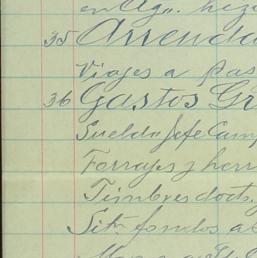 en Agn. hiz
35 Arrenda
Viajes a pas
36 Gastos Gr
Sueldo Jefe Camp
Forrajes y herr
Timbres docts.
Sitn. fondos a